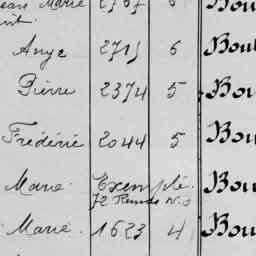 Jean Marie 2767 6 Bou
Ange 2715 6 Bou
Pierre 2374 5 Bou
Frédéric 2044 5 Bou
Marie Exempté Bou
72 Rennes N.
Marie 1623 4 Bou